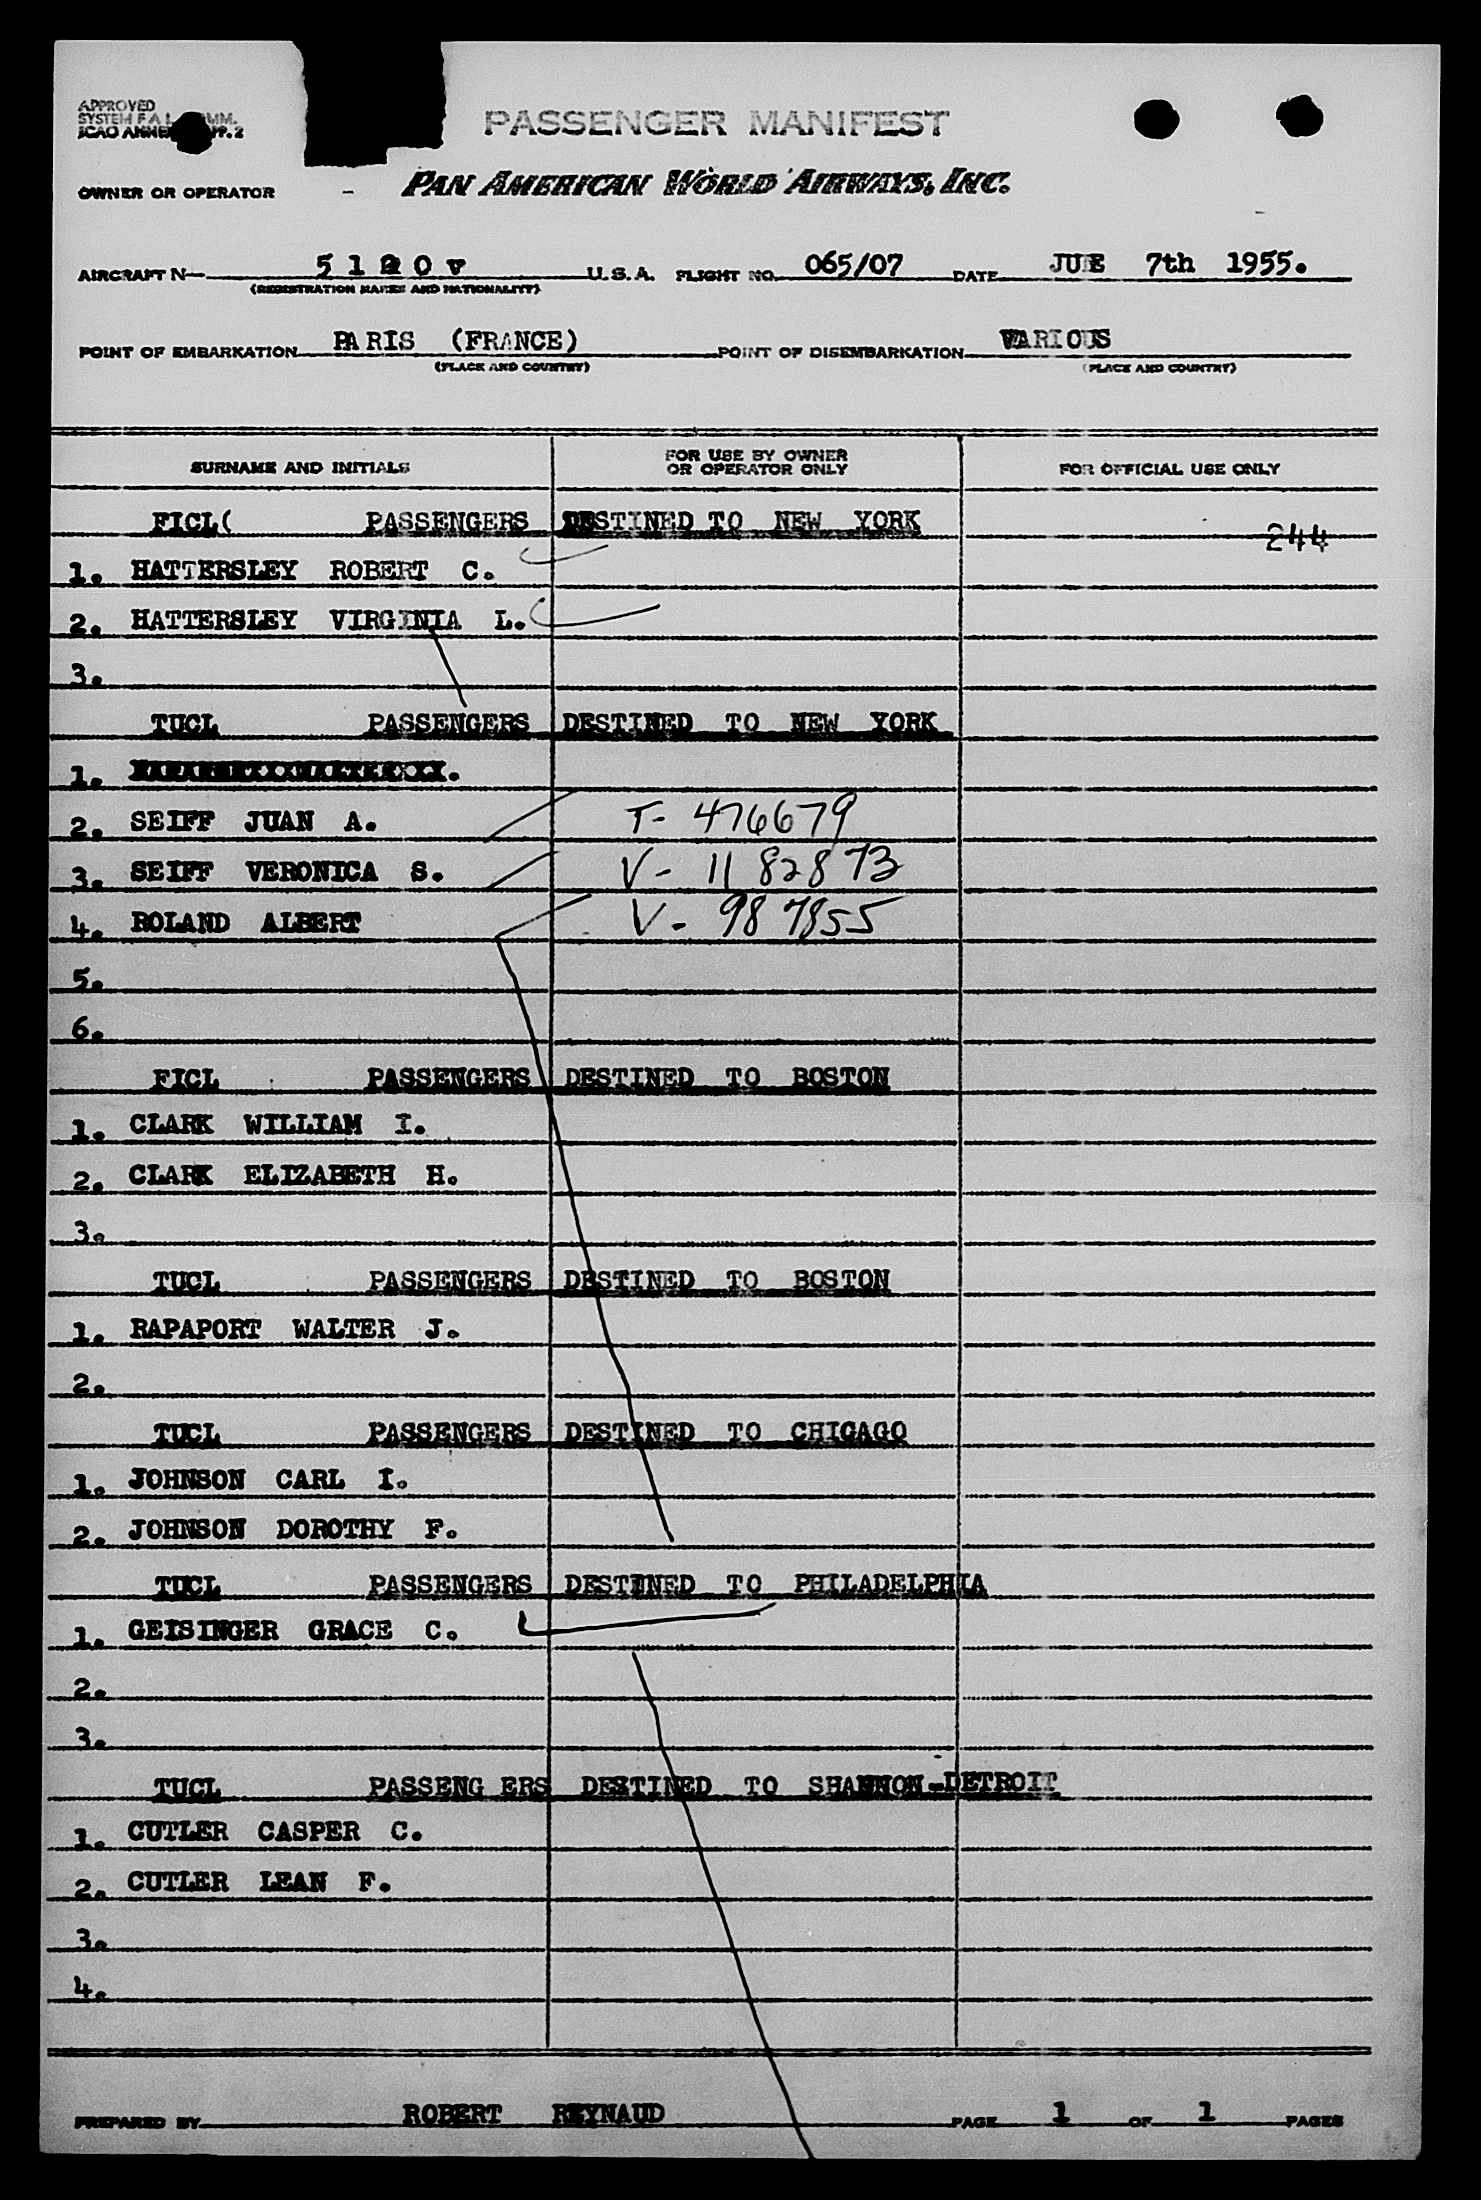 APPROVED
SYSTEM F A L
ICAO
PASSENGER MANIFEST
OWNER OR OPERATOR - PAN AMERICAN WORLD AIRWAYS, INC.
AIRCRAFT N— U.S.A. FLIGHT NO. 065/07 DATE JUE 7th 1955.
(REGISTRATION MARKS AND NATIONALITY)
POINT OF EMBARKATION PARIS (FRANCE) POINT OF DISEMBARKATION VARIOUS
(PLACE AND COUNTRY) (PLACE AND COUNTRY)
SURNAME AND INITIALS FOR USE BY OWNER OR OPERATOR ONLY FOR OFFICIAL USE ONLY
FICL( PASSENGERS DESTINED TO NEW YORK 244
1. HATTERSLEY ROBERT C.
2. HATTERSLEY VIRGINIA L.
3.
TUCL PASSENGERS DESTINED TO NEW YORK
1.
2. SEIFF JUAN A. T- 476679
3. SEIFF VERONICA S. V- 1182873
4. ROLAND ALBERT V- 987855
5.
6.
FICL PASSENGERS DESTINED TO BOSTON
1. CLARK WILLIAM I.
2. CLARK ELIZABETH H.
3.
TUCL PASSENGERS DESTINED TO BOSTON
1. RAPAPORT WALTER J.
2.
TUCL PASSENGERS DESTINED TO CHICAGO
1. JOHNSON CARL I.
2. JOHNSON DOROTHY F.
TUCL PASSENGERS DESTINED TO PHILADELPHIA
1. GEISINGER GRACE C.
2.
3.
TUCL PASSENG ERS DESTINED TO SHANNON-DETROIT
1. CUTLER CASPER C.
2. CUTLER LEAN F.
3.
4.
PREPARED BY ROBERT REYNAUD PAGE 1 OF 1 PAGES